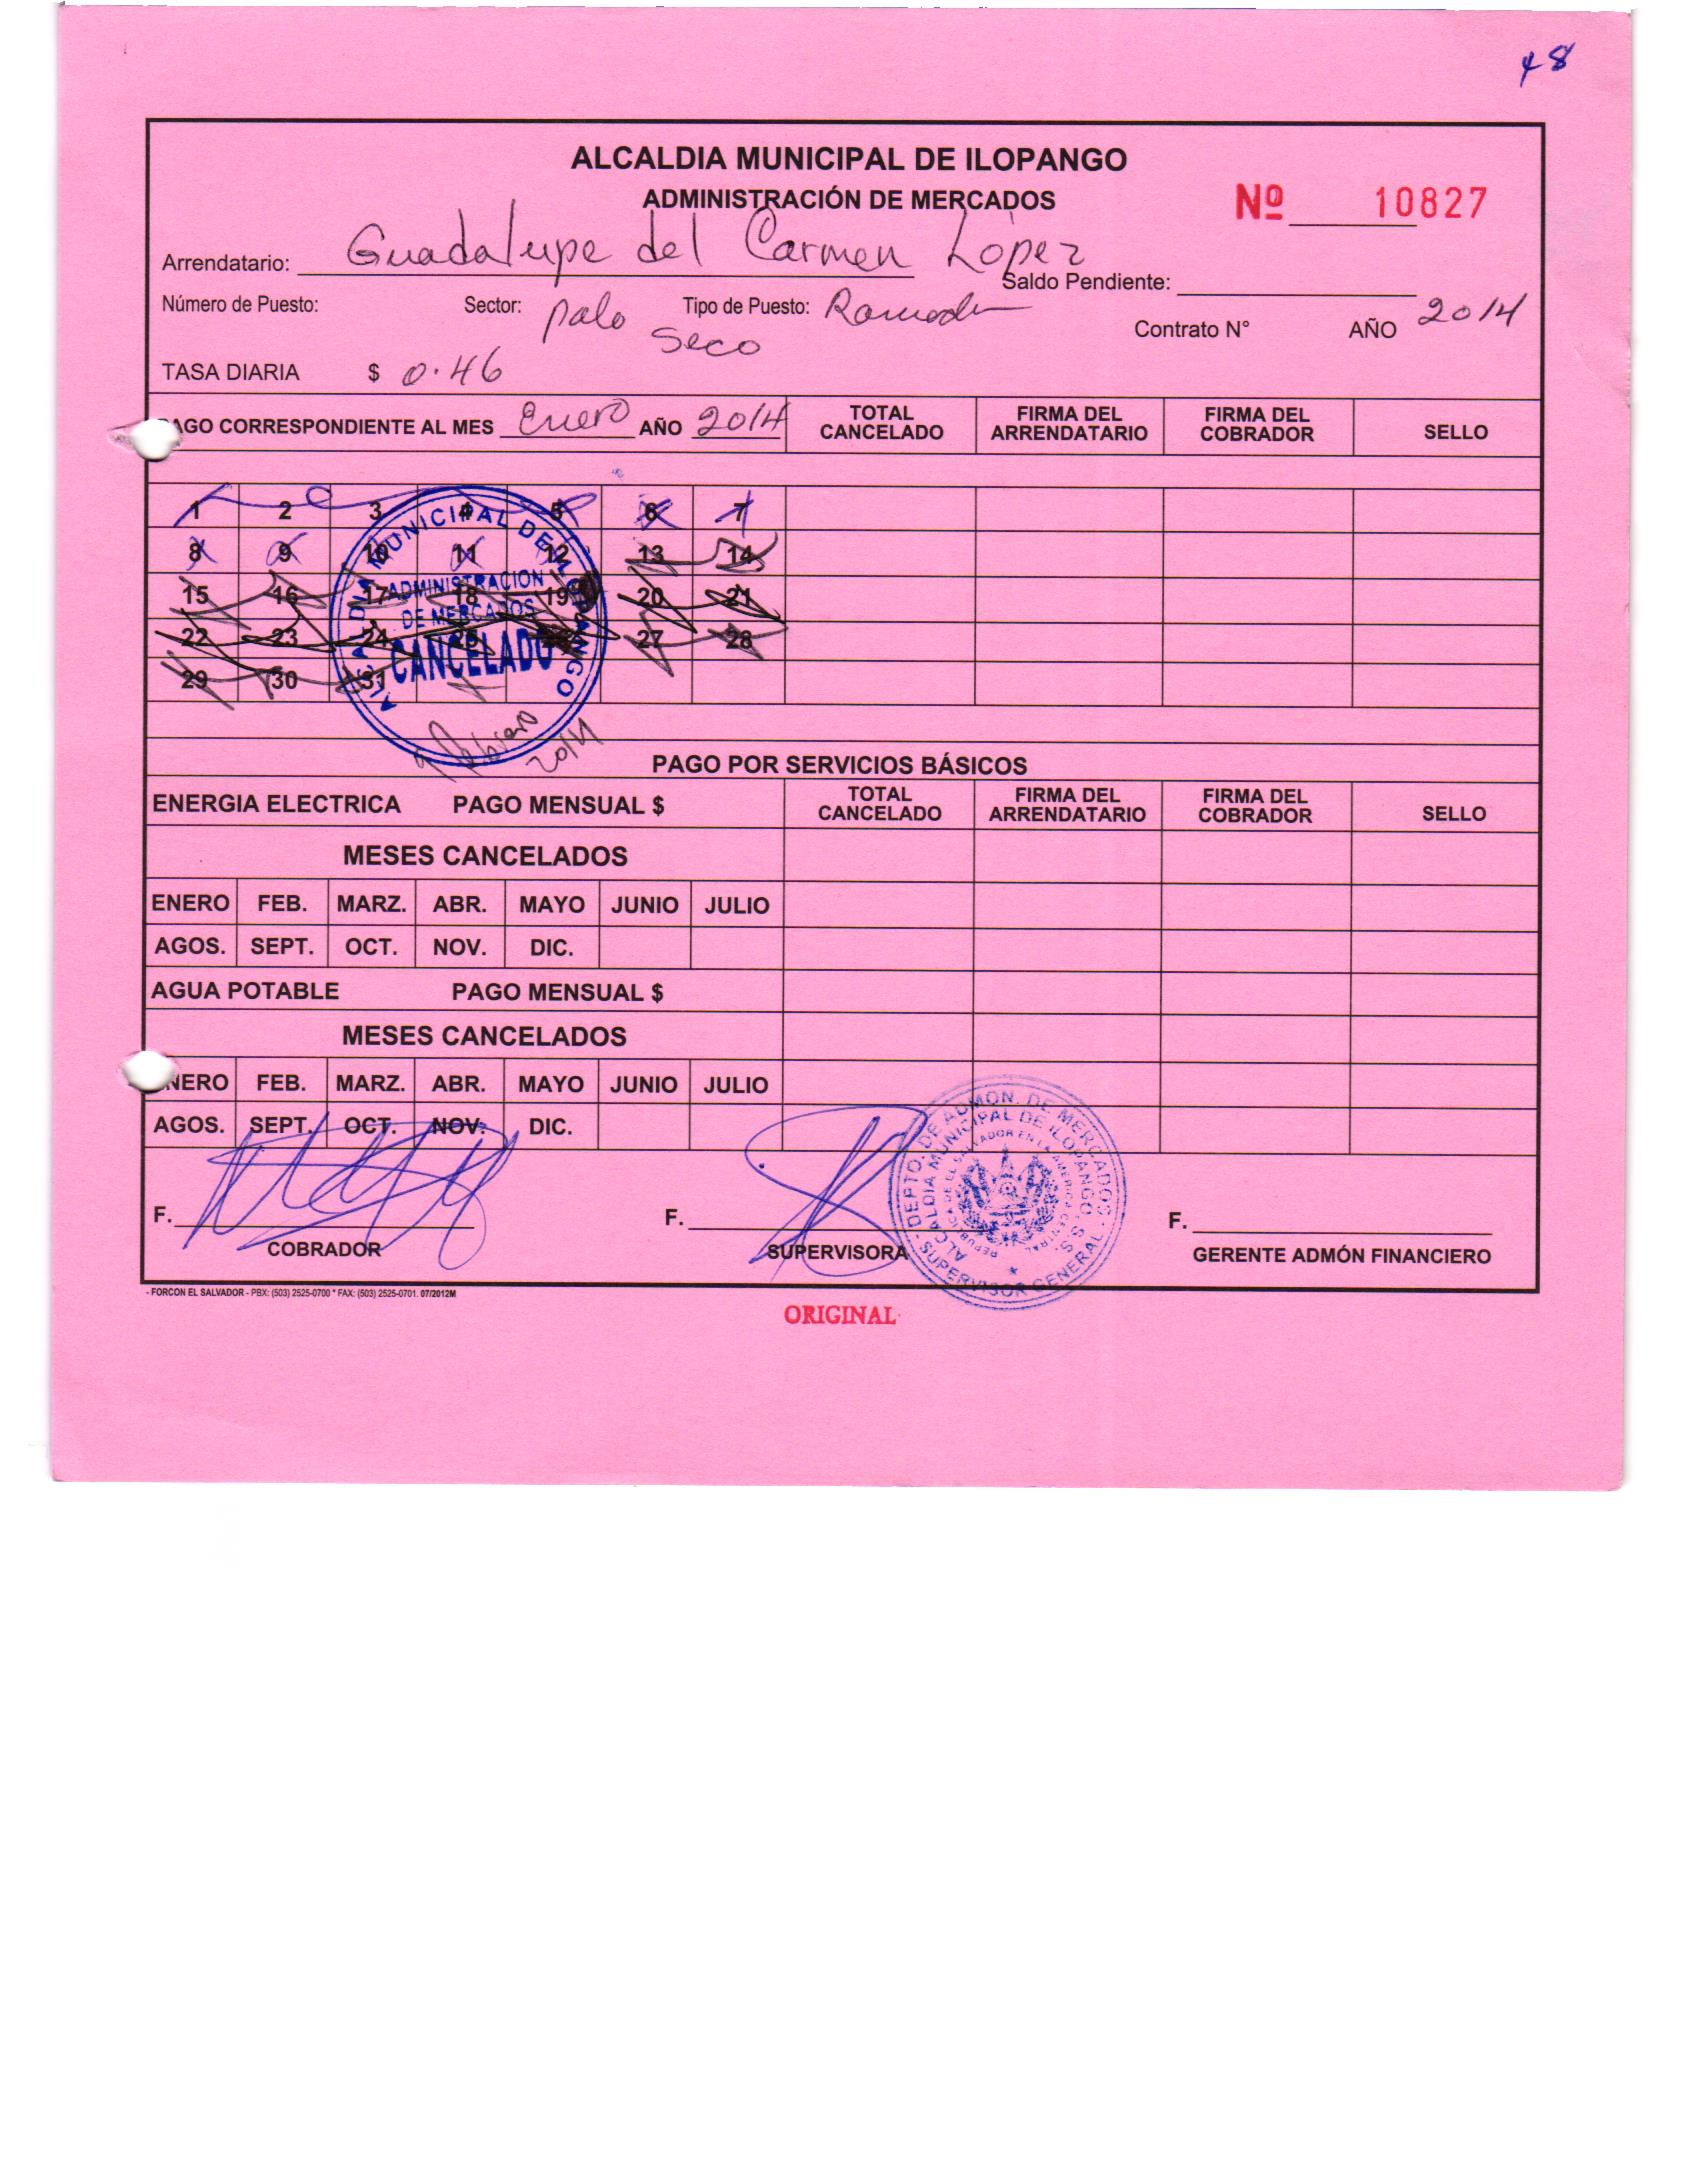 48
ALCALDIA MUNICIPAL DE ILOPANGO
ADMINISTRACIÓN DE MERCADOS
Nº 10827
Arrendatario: Guadalupe del Carmen López
Saldo Pendiente:
Número de Puesto: Sector: palo seco Tipo de Puesto:
Contrato N° AÑO 2014
TASA DIARIA $ 0.46
PAGO CORRESPONDIENTE AL MES Enero AÑO 2014 TOTAL CANCELADO FIRMA DEL ARRENDATARIO FIRMA DEL COBRADOR SELLO
1 2 3 4 5 6 7
8 9 10 11 12 13 14
15 16 17 18 19 20 21
22 23 24 25 26 27 28
29 30 31
ALCALDIA MUNICIPAL DE ILOPANGO
ADMINISTRACION
DE MERCADOS
CANCELADO
Febrero
2014
PAGO POR SERVICIOS BÁSICOS
ENERGIA ELECTRICA PAGO MENSUAL $ TOTAL CANCELADO FIRMA DEL ARRENDATARIO FIRMA DEL COBRADOR SELLO
MESES CANCELADOS
ENERO FEB. MARZ. ABR. MAYO JUNIO JULIO
AGOS. SEPT. OCT. NOV. DIC.
AGUA POTABLE PAGO MENSUAL $
MESES CANCELADOS
ENERO FEB. MARZ. ABR. MAYO JUNIO JULIO
AGOS. SEPT. OCT. NOV. DIC.
DEPTO. DE ADMON. DE MERCADOS
ALCALDIA MUNICIPAL DE ILOPANGO. S.S.
REPUBLICA DE EL SALVADOR EN LA AMERICA CENTRAL
SUPERVISOR GENERAL
F. F. F.
COBRADOR SUPERVISORA GERENTE ADMÓN FINANCIERO
- FORCON EL SALVADOR - PBX: (503) 2525-0700 * FAX: (503) 2525-0701. 07/2012M
ORIGINAL